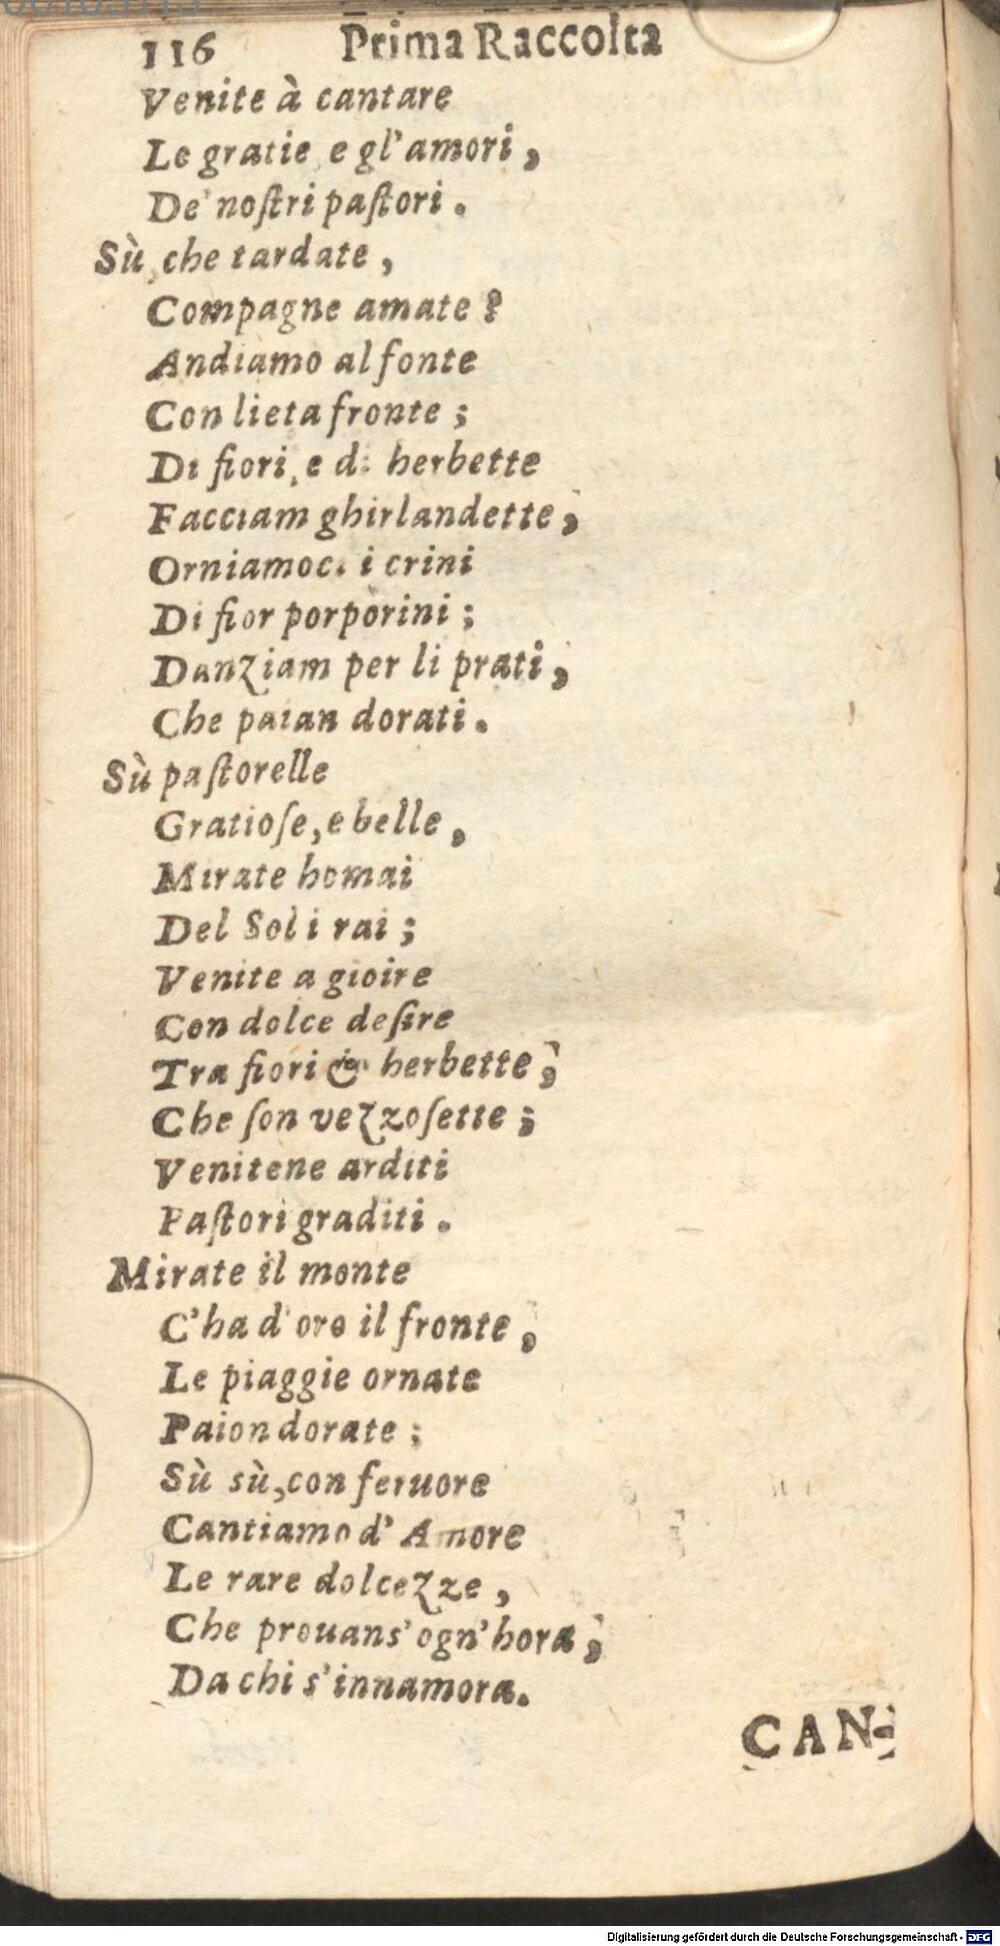 116 Prima Raccolta
Venite à cantare
Le gratie e gl'amori,
De' noſtri paſtori.
Sù, che tardate,
Compagne amate?
Andiamo al fonte
Con lieta fronte;
Di fiori, e di herbette
Facciam ghirlandette,
Orniamoci i crini
Di fior porporini;
Danziam per li prati,
Che paian dorati.
Sù paſtorelle
Gratioſe, e belle,
Mirate homai
Del Sol i rai;
Venite a gioire
Con dolce deſire
Tra fiori & herbette,
Che ſon vezzoſette;
Venitene arditi
Paſtori graditi.
Mirate il monte
C'ha d'oro il fronte,
Le piaggie ornate
Paion dorate;
Sù sù, con feruore
Cantiamo d'Amore
Le rare dolcezze,
Che prouans' ogn'hora,
Da chi s'innamora.
CAN-
Digitalisierung gefördert durch die Deutsche Forschungsgemeinschaft - DFG